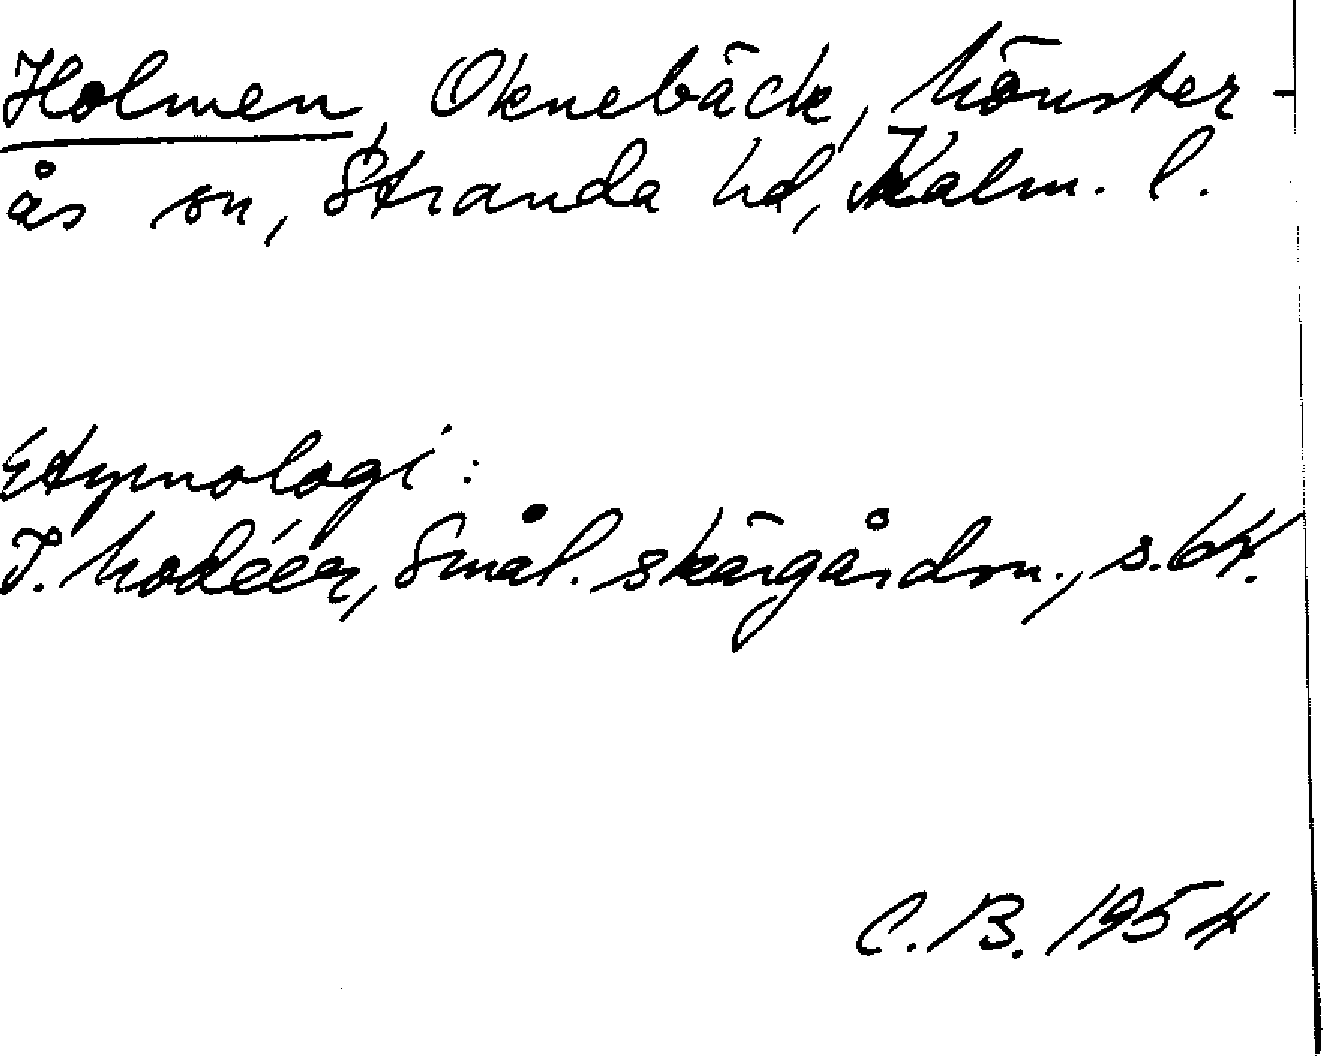 Holmen, Oknebäck, Mönster-
ås sn, Stranda hd, Kalm. l.
Etymologi:
I. Modéer, Smål. skärgårdsn., s. 64.
C. B. 1954